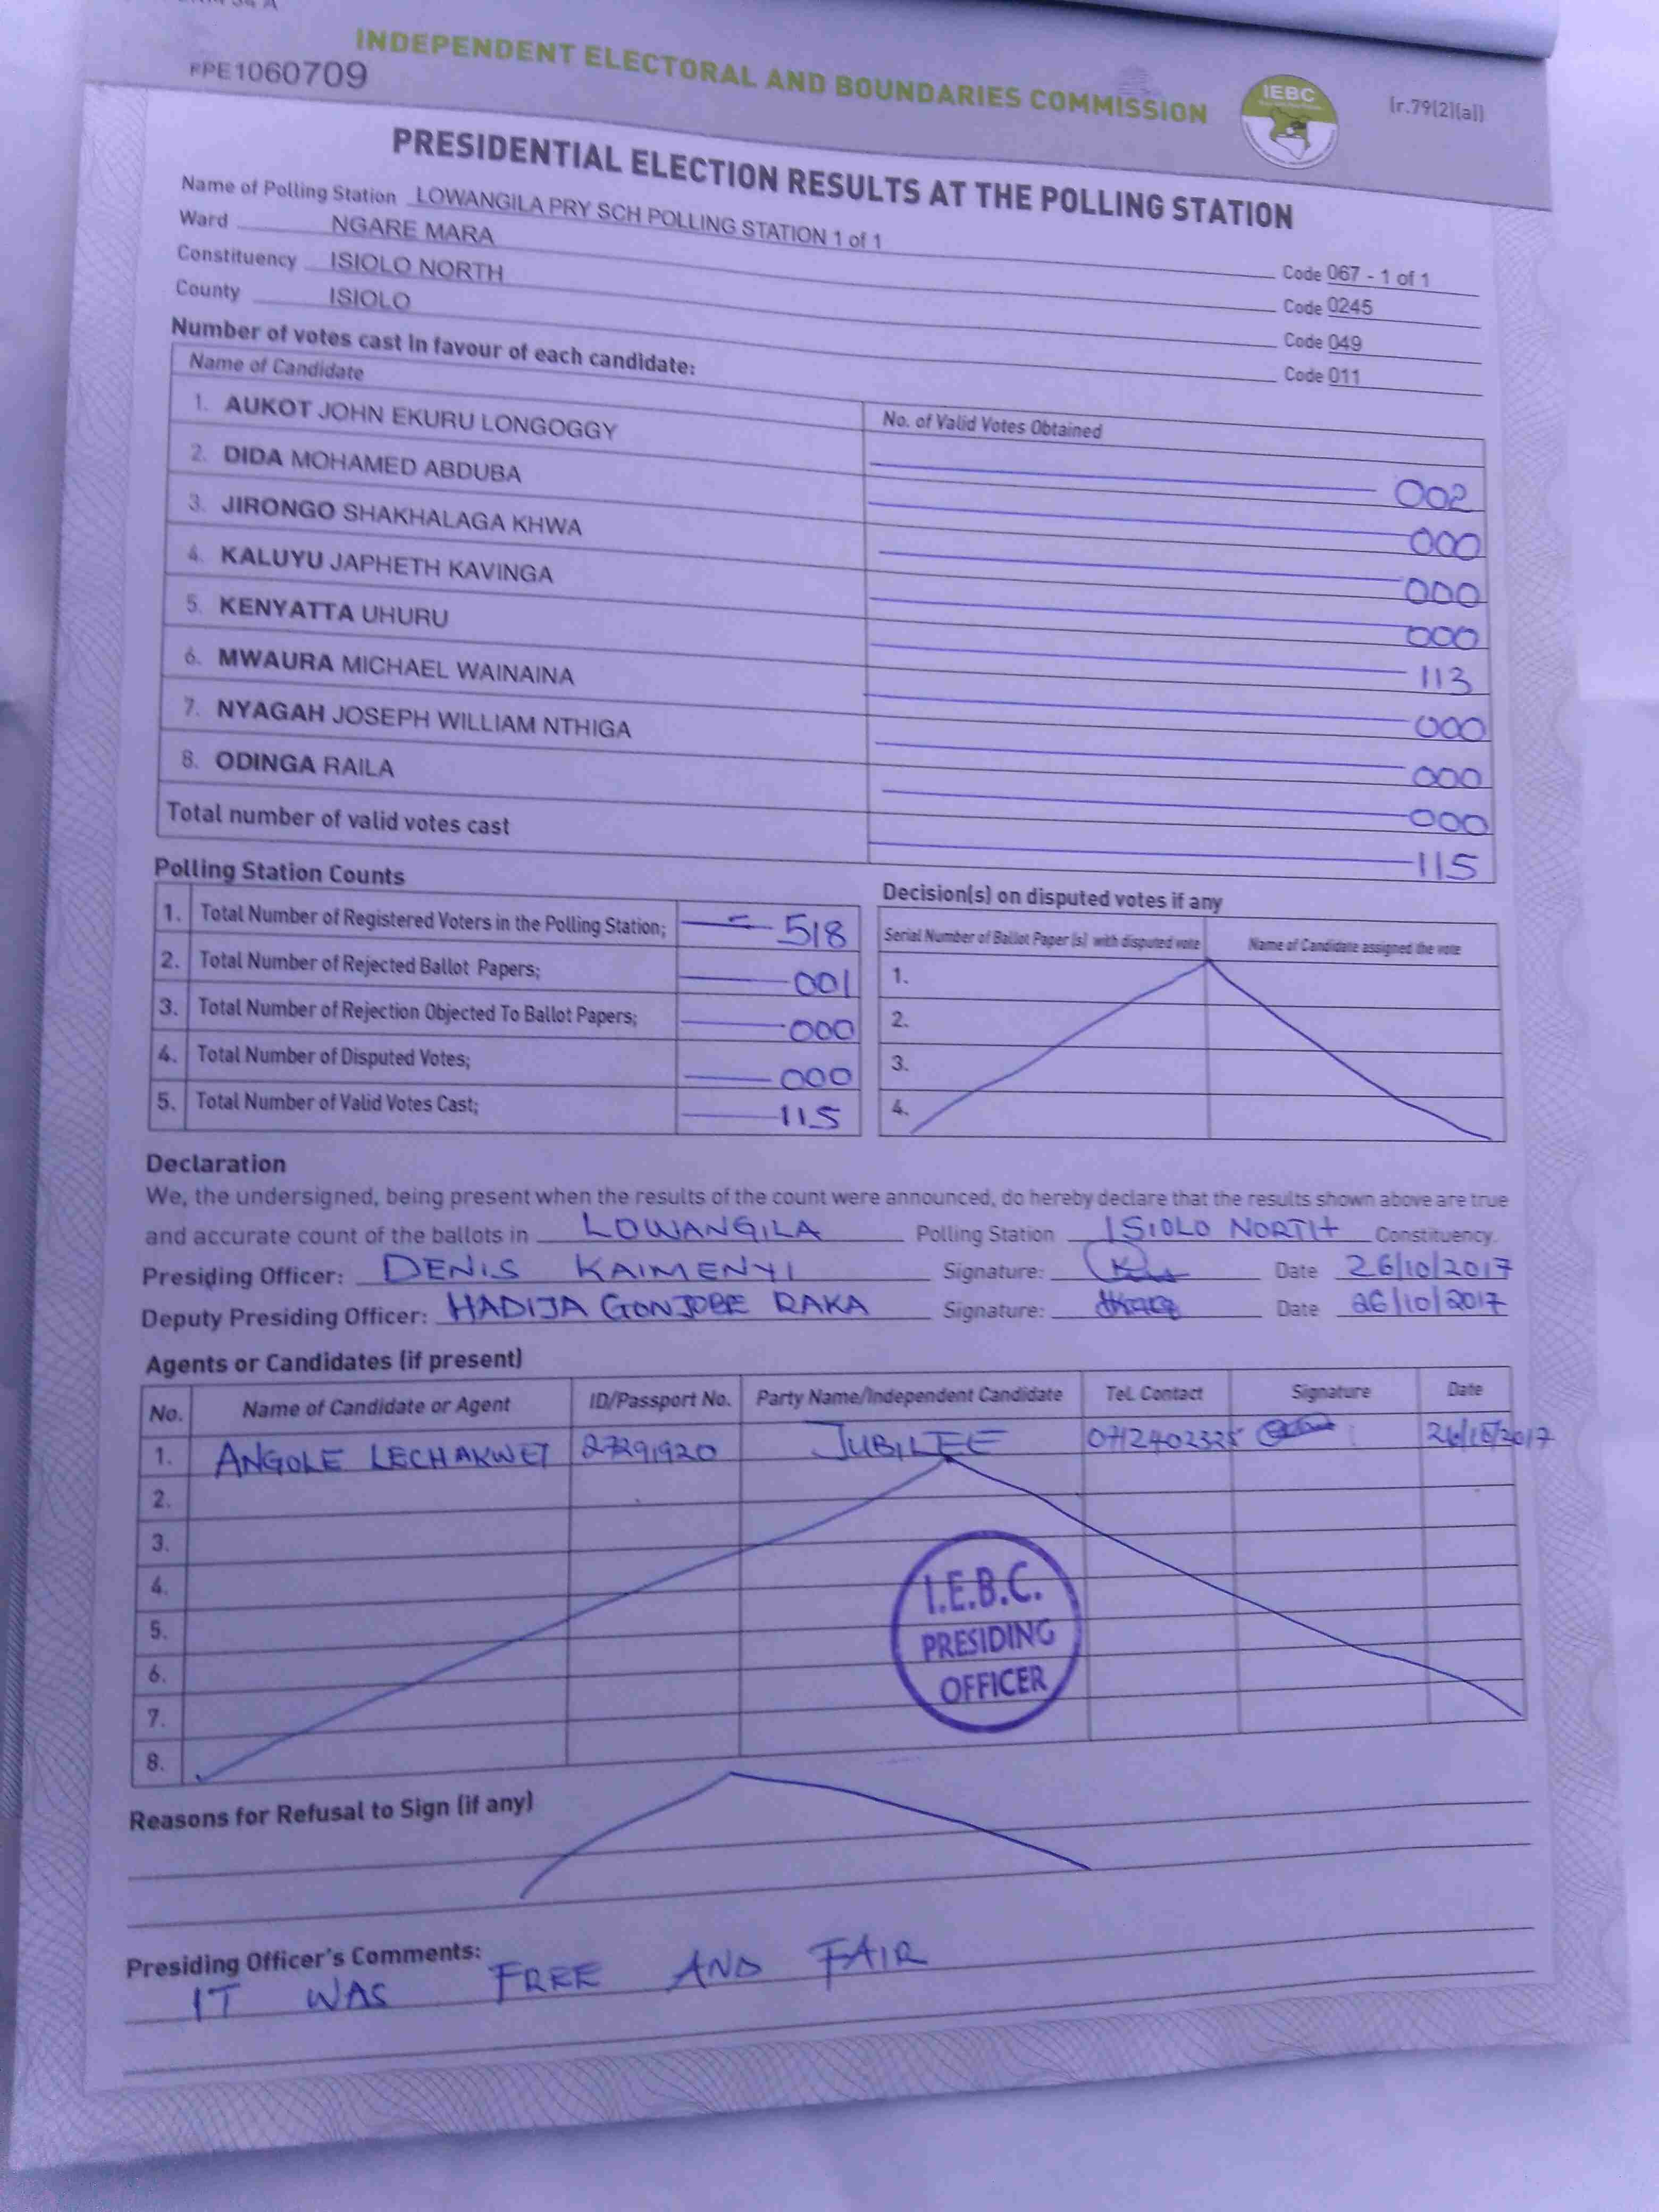 INDEPENDENT ELECTORAL AND BOUNDARIES COMMISSION
FPE1060709
IEBC
(r.79(2)(a))
PRESIDENTIAL ELECTION RESULTS AT THE POLLING STATION
Name of Polling Station LOWANGILA PRY SCH POLLING STATION 1 of 1 Code 067 - 1 of 1
Ward NGARE MARA Code 0245
Constituency ISIOLO NORTH Code 049
County ISIOLO Code 011
Number of votes cast in favour of each candidate:
Name of Candidate No. of Valid Votes Obtained
1. AUKOT JOHN EKURU LONGOGGY 002
2. DIDA MOHAMED ABDUBA 000
3. JIRONGO SHAKHALAGA KHWA 000
4. KALUYU JAPHETH KAVINGA 000
5. KENYATTA UHURU 113
6. MWAURA MICHAEL WAINAINA 000
7. NYAGAH JOSEPH WILLIAM NTHIGA 000
8. ODINGA RAILA 000
Total number of valid votes cast 115
Polling Station Counts
1. Total Number of Registered Voters in the Polling Station; 518
2. Total Number of Rejected Ballot Papers; 001
3. Total Number of Rejection Objected To Ballot Papers; 000
4. Total Number of Disputed Votes; 000
5. Total Number of Valid Votes Cast; 115
Decision(s) on disputed votes if any
Serial Number of Ballot Paper (s) with disputed vote Name of Candidate assigned the vote
1.
2.
3.
4.
Declaration
We, the undersigned, being present when the results of the count were announced, do hereby declare that the results shown above are true
and accurate count of the ballots in LOWANGILA Polling Station ISIOLO NORTH Constituency.
Presiding Officer: DENIS KAIMENYI Signature: Date 26/10/2017
Deputy Presiding Officer: HADIJA GONJOBE RAKA Signature: Date 26/10/2017
Agents or Candidates (if present)
No. Name of Candidate or Agent ID/Passport No. Party Name/Independent Candidate Tel. Contact Signature Date
1. ANGOLE LECHAKWET 27291920 JUBILEE 0712402325 26/10/2017
2.
3.
4.
5.
6.
7.
8.
I.E.B.C.
PRESIDING
OFFICER
Reasons for Refusal to Sign (if any)
Presiding Officer's Comments:
IT WAS FREE AND FAIR